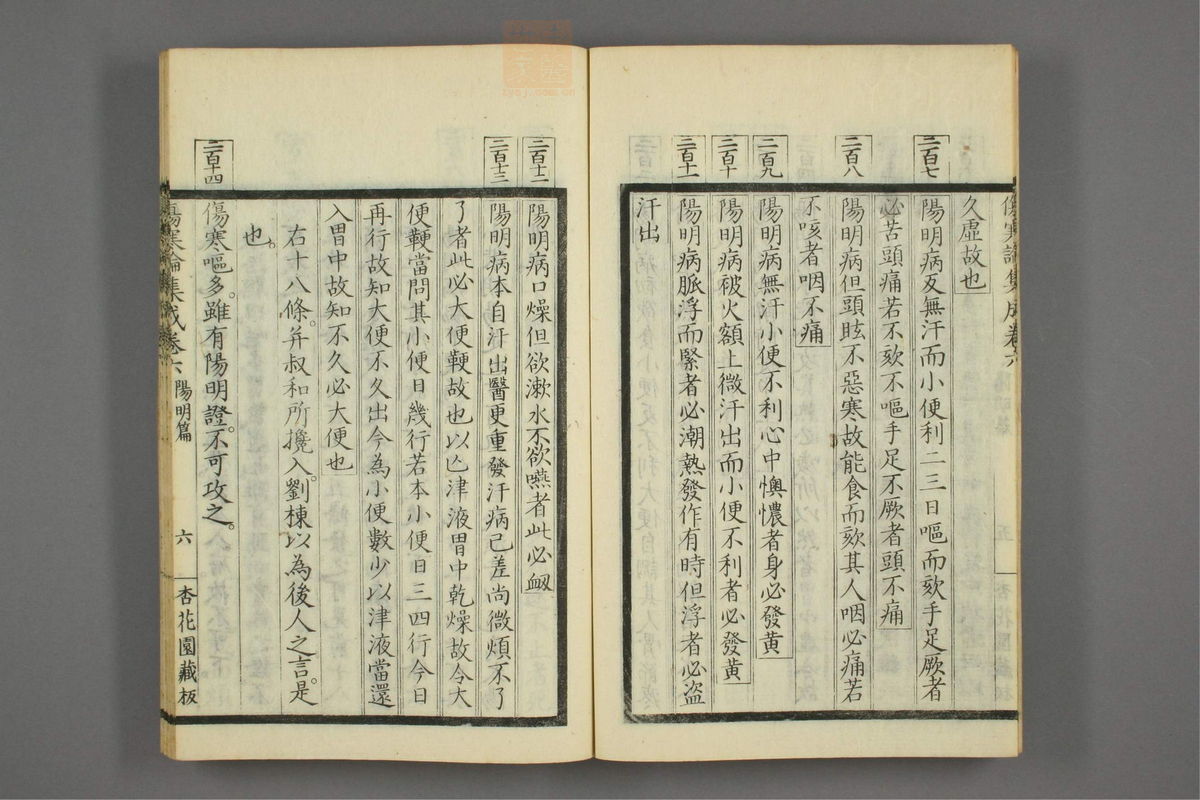 傷寒論集成卷六
久虛故也
二百七
陽明病反無汗而小便利二三日嘔而欬手足厥者
必苦頭痛若不欬不嘔手足不厥者頭不痛
二百八
陽明病但頭眩不惡寒故能食而欬其人咽必痛若
不咳者咽不痛
二百九
陽明病無汗小便不利心中懊憹者身必發黃
二百十
陽明病被火額上微汗出而小便不利者必發黃
二百十一
陽明病脈浮而緊者必潮熱發作有時但浮者必盜
汗出
二百十二
陽明病口燥但欲漱水不欲嚥者此必衄
二百十三
陽明病本自汗出醫更重發汗病已差尚微煩不了
了者此必大便鞕故也以亡津液胃中乾燥故令大
便鞕當問其小便日幾行若本小便日三四行今日
再行故知大便不久出今為小便數少以津液當還
入胃中故知不久必大便也
右十八條。并叔和所攙入。劉棟以為後人之言。是
也。
二百十四
傷寒嘔多。雖有陽明證。不可攻之。
傷寒論集成卷六 陽明篇 六 杏花園藏板